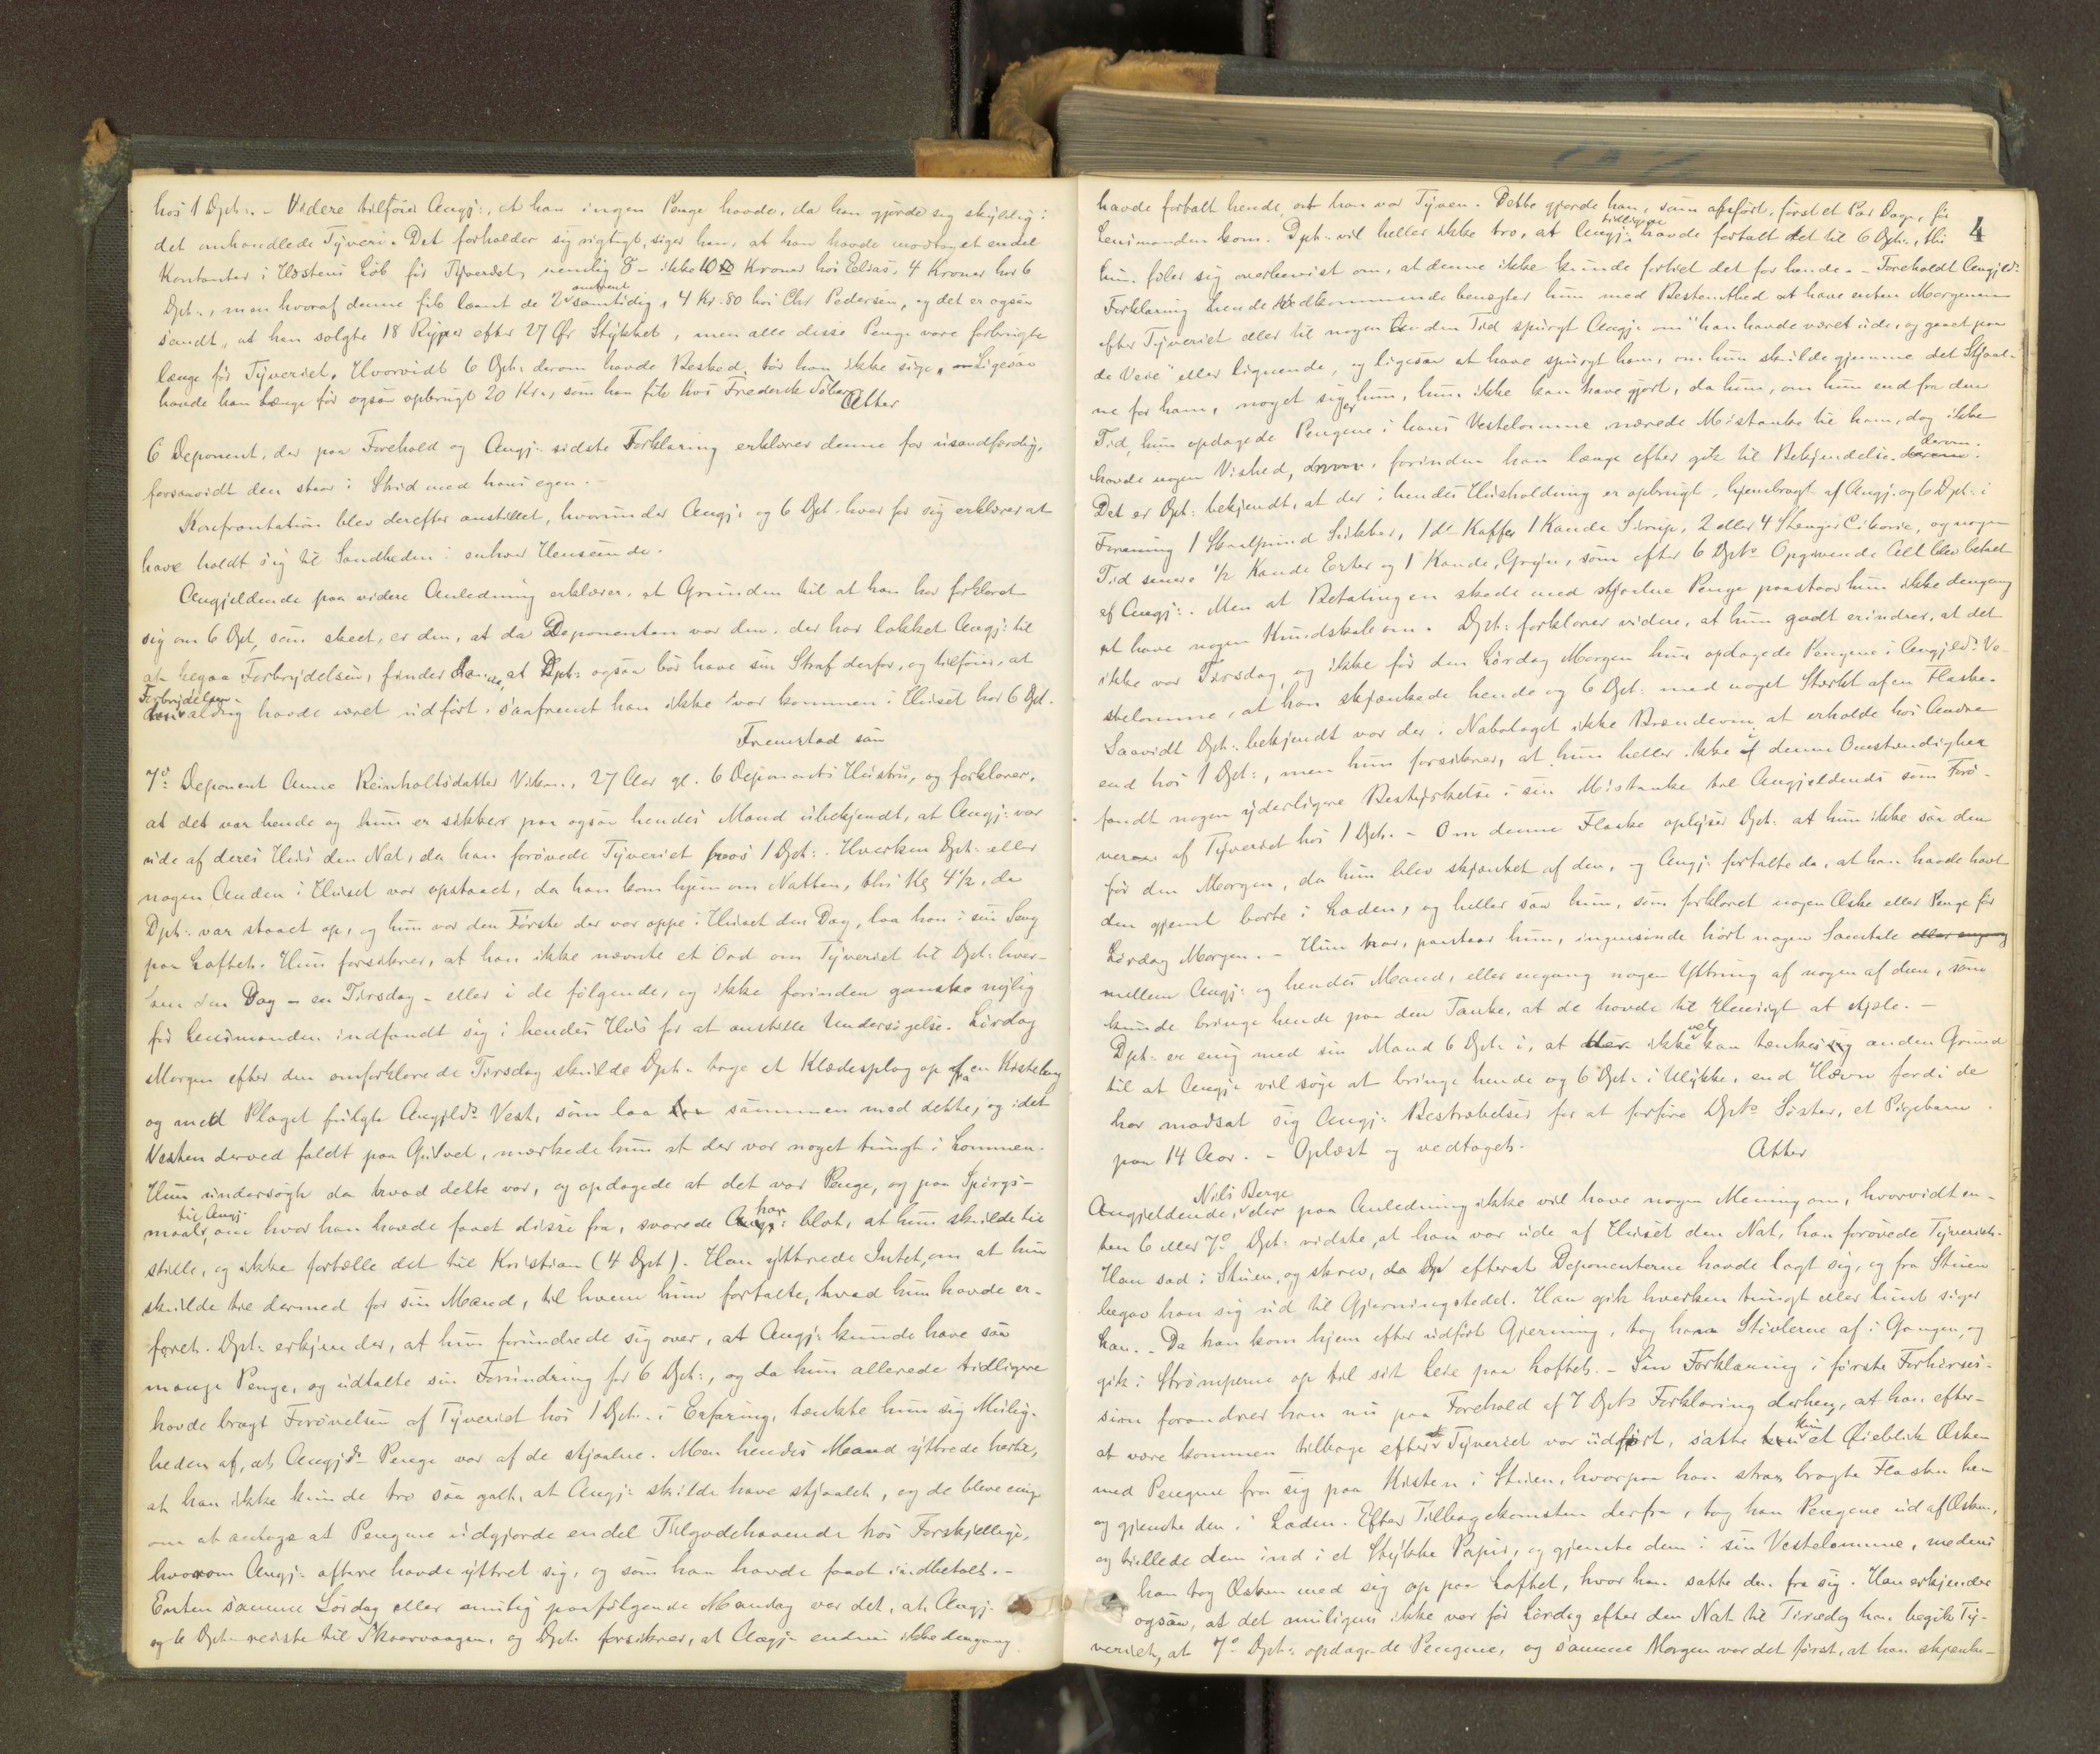 hos 1 Dpt:. - Videre tilføier Angj:, at han ingen Penge havde, da han gjorde sig skyldig i
det omhandlede Tyveri. Det forholder sig rigtigt, siger han, at han havde modtaget endel
Kontanter i Høstens Løb før Tyveriet, nemlig 8 - ikke 10 Kroner hos Elias, 4 Kroner hos 6
Dpt:, men hvoraf denne fik laant de 2 omtrent samtidig, 4 Kr. 80 hos Chr Pedersen, og det er ogsaa
sandt, at han solgte 18 Ryper efter 27 Ør Stykket, men alle disse Penge vare forbrugte
længe før Tyveriet. Hvorvidt 6 Dpt: derom havde Besked, tør han ikke sige. Ligesaa
havde han længe før ogsaa opbrugt 20 Kr., som han fik hos Frederik
Atter
6 Deponent, der paa Forehold og Angj: sidste Forklaring erklærer denne for usandfærdig,
forsaavidt den staar i Strid med hans egen. -
Konfrontation blev derefter anstillet, hvorunder Angj: og 6 Dpt. hver for sig erklærer at
have holdt sig til Sandheden i enhver Henseende.
Angjeldende paa videre Anledning erklærer, at Grunden til at han har forklaret
sig om 6 Dpt, som skeet, er den, at da Deponenten var den, der har lokket Angj: til
at begaa Forbrydelsen, finder han, at Dpt: ogsaa bør have sin Straf derfor, og tilføier, at
Forbrydelsen aldrig havde været udført, saafremt han ikke var kommen i Huset hos 6 Dpt.
Fremstod saa
7de Deponent Anne Reinholtsdatter Viken, 27 Aar gl. 6 Deponents Hustru, og forklarer,
at det var hende og hun er sikker paa ogsaa hendes Mand ubekjendt, at Angj: var
ude af deres Hus den Nat, da han forøvede Tyveriet hos 1 Dpt:. Hverken Dpt: eller
nogen Anden i Huset var opstaaet, da han kom hjem om Natten, thi Kl 4½, da
Dpt: var staaet op, og hun var den Første der var oppe i Huset den Dag, laa han i sin Seng
paa Loftet. Hun forsikrer, at han ikke nævnte et Ord om Tyveriet til Dpt: hver-
ken den Dag - en Tirsdag - eller i de følgende, og ikke forinden ganske nylig
før Lensmanden indfandt sig i hendes Hus for at anstille Undersøgelse. Lørdag
Morgen efter den omforklarede Tirsdag skulde Dpt: tage et Klædesplag op af en Kiste
og med Plaget fulgte Angjlds Vest, som laa sammen med dette, og idet
Vesten derved faldt paa Gulvet, mærkede hun at der var noget tungt i Lommen.
Hun undersøgte da hvad dette var, og opdagede at det var Penge, og paa Spørgs-
maal til Angj. om hvor han havde faaet disse fra, svarede han blot, at hun skulde tie
stille, og ikke fortælle det til Kristian (4 Dpt). Han yttrede Intet om at hun
skulde tie dermed for sin Mand, til hvem hun fortalte, hvad hun havde er-
faret. Dpt: erkjender, at hun forundrede sig over, at Angj: kunde have saa
mange Penge, og udtalte sin Forundring for 6 Dpt:, og da hun allerede tidligere
havde bragt Forøvelsen af Tyveriet hos 1 Dpt: i Erfaring, tænkte hun sig Mulig-
heden af, at Angjds Penge var af de stjaalne. Men hendes Mand yttrede herte,
at han ikke kunde tro saa galt, at Angj: skulde have stjaalet, og de bleve enige
om at antage at Pengene udgjorde endel Tilgodehavende hos Forskjellige,
hvorom Angj: oftere havde yttret sig, og som han havde faaet indbetalt. -
Enten samme Lørdag eller paafølgende Mandag var det, at Angj:
og 6 Dpt reiste til Skaarvaagen, og Dpt: forsikrer, at Angj: endnu ikke dengang
4
havde fortalt hende, at han var Tyven. Dette gjorde han, som anført, først et Par Dage, før
Lensmanden kom. Dpt: vil heller ikke tro, at Angj: tidligere havde fortalt det til 6 Dpt:, thi
hun føler sig overbevist om, at denne ikke kunde fortiet det for hende. - Foreholdt Angjlds
Forklaring hende vedkommende benægter hun med Bestemthed at have enten Morgenen
efter Tyveriet eller til nogen anden Tid spurgt Angj: om "han havde været ude, og gaaet paa
de Veie" eller lignende, og ligesaa at have spurgt ham, om hun skulde gjemme det Stjaal-
ne for ham, noget siger hun, hun ikke kan have gjort, da hun, om hun end fra den
Tid, hun opdagede Pengene i hans Vestelomme nærede Mistanke til ham, dog ikke
havde nogen Vished, forinden han længe efter gik til Bekjendelse derom.
Det er Dpt: bekjendt, at der i hendes Husholdning er opbrugt, hjembragt af Angj. og 6 Dpt: i
Forening 1 Skaalpund Sukker, 1 do Kaffe, 1 Kande Sirup, 2 eller 4 Stenger Cikorie, og nogen
Tid senere ½ Kande Erter og 1 Kande Gryn, som efter 6 Dpts Opgivende Alt blev betalt
af Angj:. Men at Betalingen skede med stjaalne Penge paastaar hun ikke dengang
at have nogen Kundskab om. Dpt: forklarer videre, at hun godt erindrer, at det
ikke var Tirsdag, og ikke før den Lørdag Morgen hun opdagede Pengene i Angjlds Ve-
stelomme, at han skjænkede hende og 6 Dpt: med noget Stærkt af en Flaske.
Saavidt Dpt: bekjendt var der i Nabolaget ikke Brændevin at erholde hos Andre
end hos 1 Dpt:, men hun forsikrer, at hun heller ikke i denne Omstændighed
fandt nogen yderligere Bestyrkelse i sin Mistanke til Angjeldende som Forø-
veren af Tyveriet hos 1 Dpt. - Om denne Flaske oplyser Dpt: at hun ikke saa den
før den Morgen, da hun blev skjænket af den, og Angj: fortalte da, at han havde havt
den gjemt borte i Laden, og heller saa hun, som forklaret nogen Æske eller Penge før
Lørdag Morgen. - Hun har, paastaar hun, ingensinde hørt nogen Samtale
mellem Angj: og hendes Mand, eller engang nogen Yttring af nogen af dem, som
kunde bringe hende paa den Tanke, at de havde til Hensigt at stjæle. -
Dpt: er enig med sin Mand 6 Dpt: i, at der ikke vel kan tænkes anden Grund
til at Angj: vil søge at bringe hende og 6 Dpt: i Ulykke, end Hævn fordi de
har modsat sig Angj: Bestræbelser for at forføre Dpts Søster, et Pigebarn
paa 14 Aar. - Oplæst og vedtaget.
Atter
Angjeldende, Nils Berge der paa Anledning ikke vil have nogen Mening om, hvorvidt en-
ten 6 eller 7de Dpt: vidste, at han var ude af Huset den Nat, han forøvede Tyveriet.
Han sad i Stuen, og skrev, efterat Deponenterne havde lagt sig, og fra Stuen
begav han sig ud til Gjerningstedet. Han gik hverken tungt eller lint siger
han. - Da han kom hjem efter udført Gjerning, tog han Støvlerne af i Gangen, og
gik i Strømperne op til sit Leie paa Loftet. - Sin Forklaring i første Forhørsses-
sion forandrer han nu paa Forehold af 7 Dpts Forklaring derhen, at han efter-
at være kommen tilbage efterat Tyveriet var udført, satte kun et Øieblik Æsken
med Pengene fra sig paa Kisten i Stuen, hvorpaa han strax bragte Flasken hen
og gjemte den i Laden. Efter Tilbagekomsten derfra, tog han Pengene ud af Æsken,
og tullede dem ind i et Stykke Papir, og gjemte dem i sin Vestelomme, medens
han tog Æsken med sig op paa Loftet, hvor han satte den fra sig. Han erkjender
ogsaa, at det muligens ikke var før Lørdag efter den Nat til Tirsdag han begik Ty-
veriet, at 7de Dpt: opdagede Pengene, og samme Morgen var det først, at han skjænke-